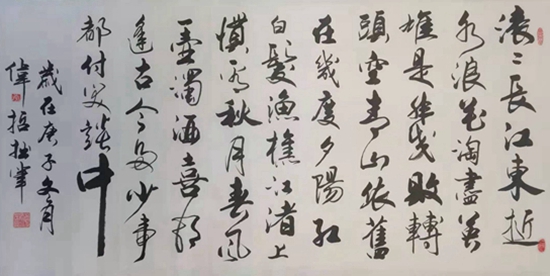 滚〻長江東逝
水浪花淘盡英
雄是非成敗轉
頭空青山依舊
在幾度夕陽紅
白髮漁樵江渚上
慣看秋月春風
一壺濁酒喜相
逢古今多少事
都付笑談中
歲在庚子文月
偉哲拙筆